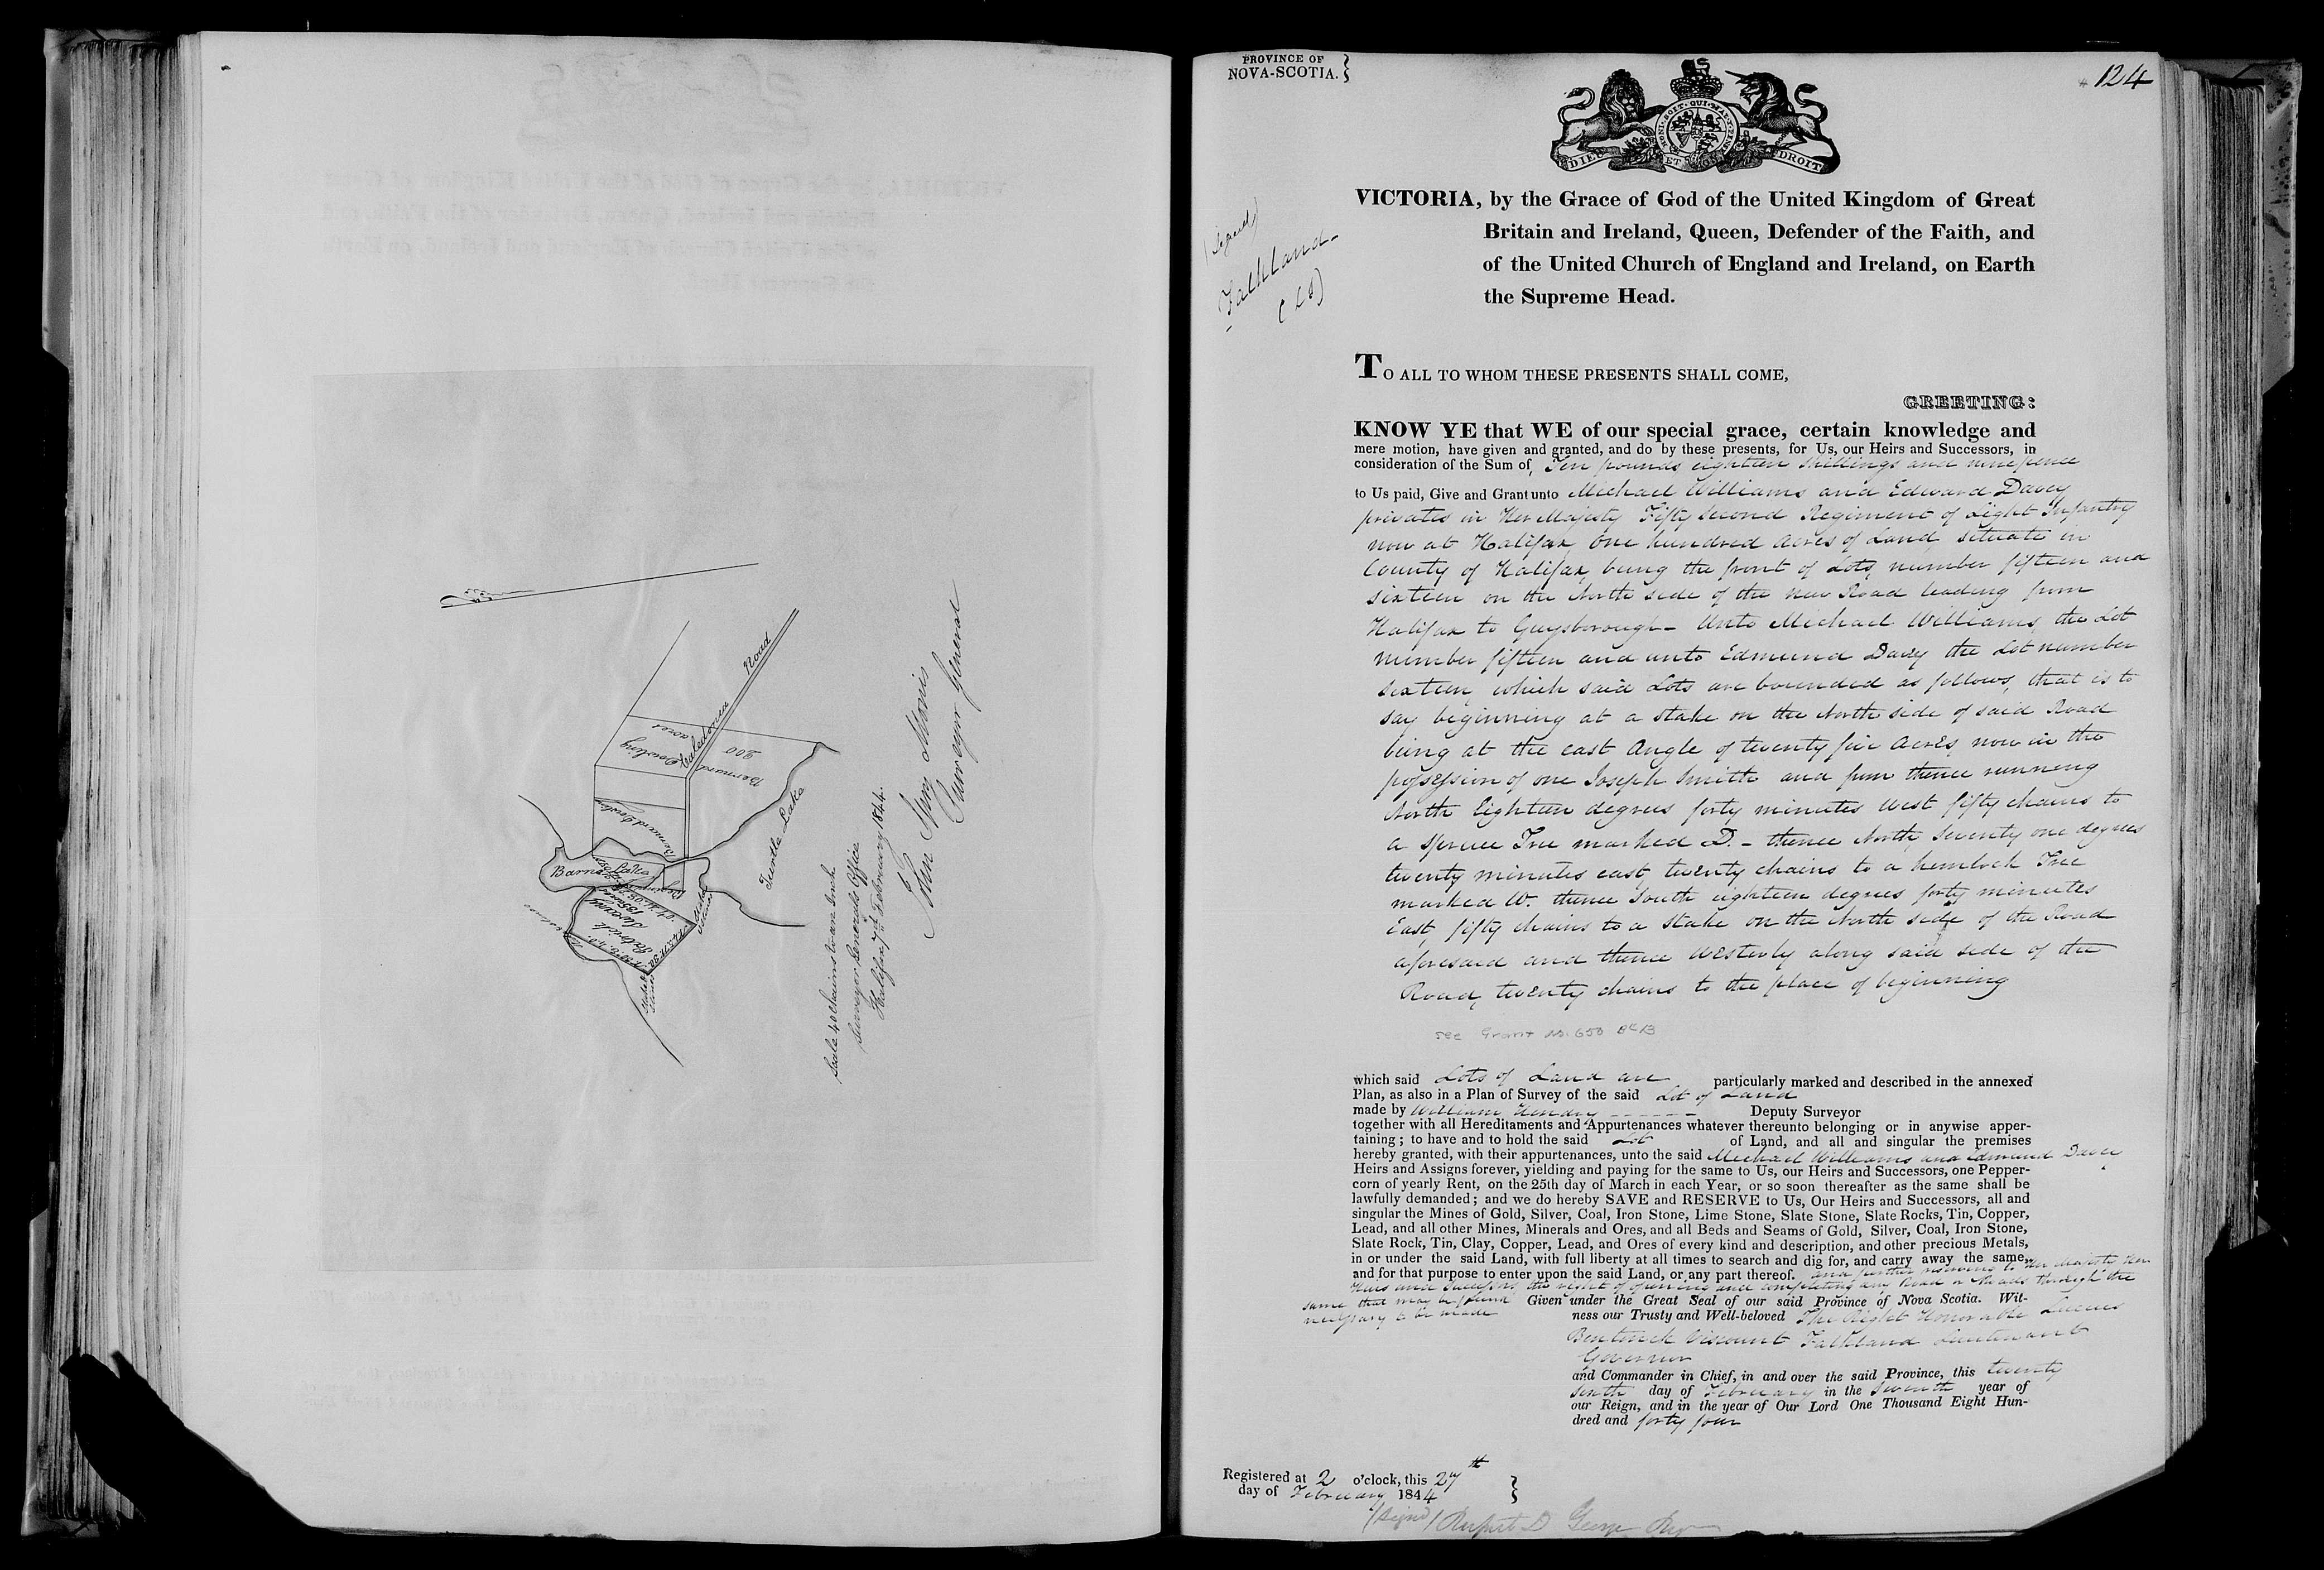 Barnard Dowling
200 acres
Bernard
200
Caledonia Road
Bernard Dowling
Barns Lake
Turtle Lake
Patrick
135 acres
Stake & Stones
Stake & Stones
Scale 40 Chains to an Inch
Surveyor Generals Office
Halifax 7th February 1844.
John Spry Morris
Surveyor General
PROVINCE OF
NOVA-SCOTIA.
# 124
HONI SOIT QUI MAL Y PENSE
DIEU ET MON DROIT
(Signed)
Falkland
(LS)
VICTORIA, by the Grace of God of the United Kingdom of Great
Britain and Ireland, Queen, Defender of the Faith, and
of the United Church of England and Ireland, on Earth
the Supreme Head.
TO ALL TO WHOM THESE PRESENTS SHALL COME,
GREETING:
KNOW YE that WE of our special grace, certain knowledge and
mere motion, have given and granted, and do by these presents, for Us, our Heirs and Successors, in
consideration of the Sum of, Ten pounds eighteen shillings and nine pence
to Us paid, Give and Grant unto Michael Williams and Edward Davey
privates in Her Majesty Fifty second Regiment of Light Infantry
now at Halifax, One hundred Acres of Land, situate in
County of Halifax, being the front of Lots, number fifteen and
sixteen on the North side of the new Road leading from
Halifax to Guysborough - Unto Michael Williams, the Lot
number fifteen and unto Edmund Davey the Lot number
sixteen which said Lots are bounded as follows, that is to
say beginning at a stake on the North side of said Road
being at the east Angle of twenty five Acres now in the
possession of one Joseph Smith and from thence running
North Eighteen degrees forty minutes West fifty chains to
a Spruce Tree marked D. - thence North seventy one degrees
twenty minutes east, twenty chains to a hemlock Tree
marked W. thence South eighteen degrees forty minutes
East, fifty chains to a stake on the North side of the Road
aforesaid and thence Westerly along said side of the
Road, twenty chains to the place of beginning
see Grant No. 650 Bk 13
which said Lots of Land are particularly marked and described in the annexed
Plan, as also in a Plan of Survey of the said Lot of Land
made by William Hendry Deputy Surveyor
together with all Hereditaments and Appurtenances whatever thereunto belonging or in anywise apper-
taining; to have and to hold the said Lot of Land, and all and singular the premises
hereby granted, with their appurtenances, unto the said Michael Williams and Edmund Davey
Heirs and Assigns forever, yielding and paying for the same to Us, our Heirs and Successors, one Pepper-
corn of yearly Rent, on the 25th day of March in each Year, or so soon thereafter as the same shall be
lawfully demanded; and we do hereby SAVE and RESERVE to Us, Our Heirs and Successors, all and
singular the Mines of Gold, Silver, Coal, Iron Stone, Lime Stone, Slate Stone, Slate Rocks, Tin, Copper,
Lead, and all other Mines, Minerals and Ores, and all Beds and Seams of Gold, Silver, Coal, Iron Stone,
Slate Rock, Tin, Clay, Copper, Lead, and Ores of every kind and description, and other precious Metals,
in or under the said Land, with full liberty at all times to search and dig for, and carry away the same,
and for that purpose to enter upon the said Land, or any part thereof. and further reserving to Her Majesty Her
Heirs and Successors the right of opening and completing any Road or Roads through the
same that may be found
necessary to be made
Given under the Great Seal of our said Province of Nova Scotia. Wit-
ness our Trusty and Well-beloved The Right Honorable Lucius
Bentinck Viscount Falkland Lieutenant
Governor
and Commander in Chief, in and over the said Province, this twenty
sixth day of February in the Seventh year of
our Reign, and in the year of Our Lord One Thousand Eight Hun-
dred and forty four
Registered at 2 o'clock, this 27th
day of February 1844
(Signed) Rupert D George